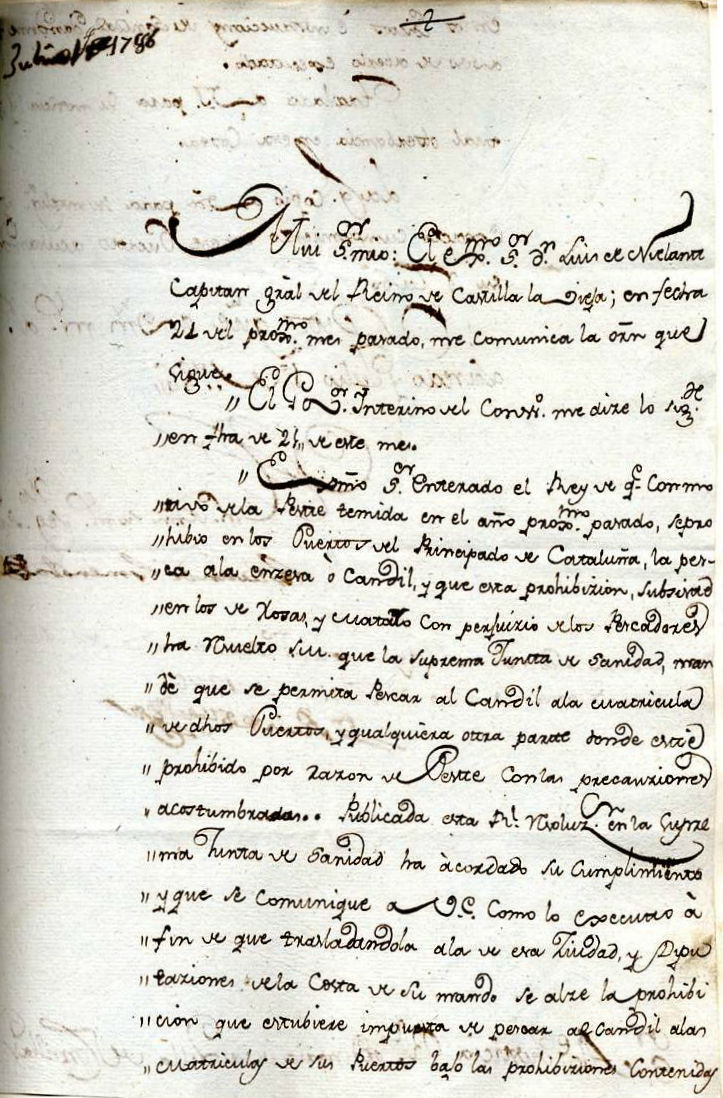 2
Julio 1786
Mui S.or mio: El Ex.mo S.or D.n Luis de Nielant
Capitan gral del Reino de Castilla la Vieja; en fecha
21 del prox.mo mes pasado, me comunica la orn que
sigue.
" El Go.or Interino del Cons.o me dize lo sig.te
"en fha de 21,, de este mes.
" Exmo S.or Enterado el Rey de q.e Con mo
"tivo de la Peste temida en el año prox.mo pasado, se pro
"hibio en los Puertos del Principado de Cataluña, la pes-
"ca ala enzesa ò Candil, y que esta prohibizion, subsistia
"en los de Rosas, y con perjuizio de los Pescadores
"ha resuelto S.M. que la suprema Juntta de Sanidad, man
"dè que se permita Pescar al Candil ala matricula
"de dhos Puertos, y qualquiera ottra partte donde estè
"prohibido por razon de Peste Con las precauziones
"acostumbradas.. Publicada esta R.l Resoluz.on en la Supre
"ma Junta de Sanidad ha àcordado su Cumplimiento
"y que se Comunique a V.E. Como lo executo à
"fin de que trasladandola ala de esa Ziudad, y Dipu
"taziones de la Costa de su mando se alze la prohibi
"cion que estubiere impuesta de pescar al Candil alas
"matriculas de sus Puertos bajo las prohibiziones Contenidas